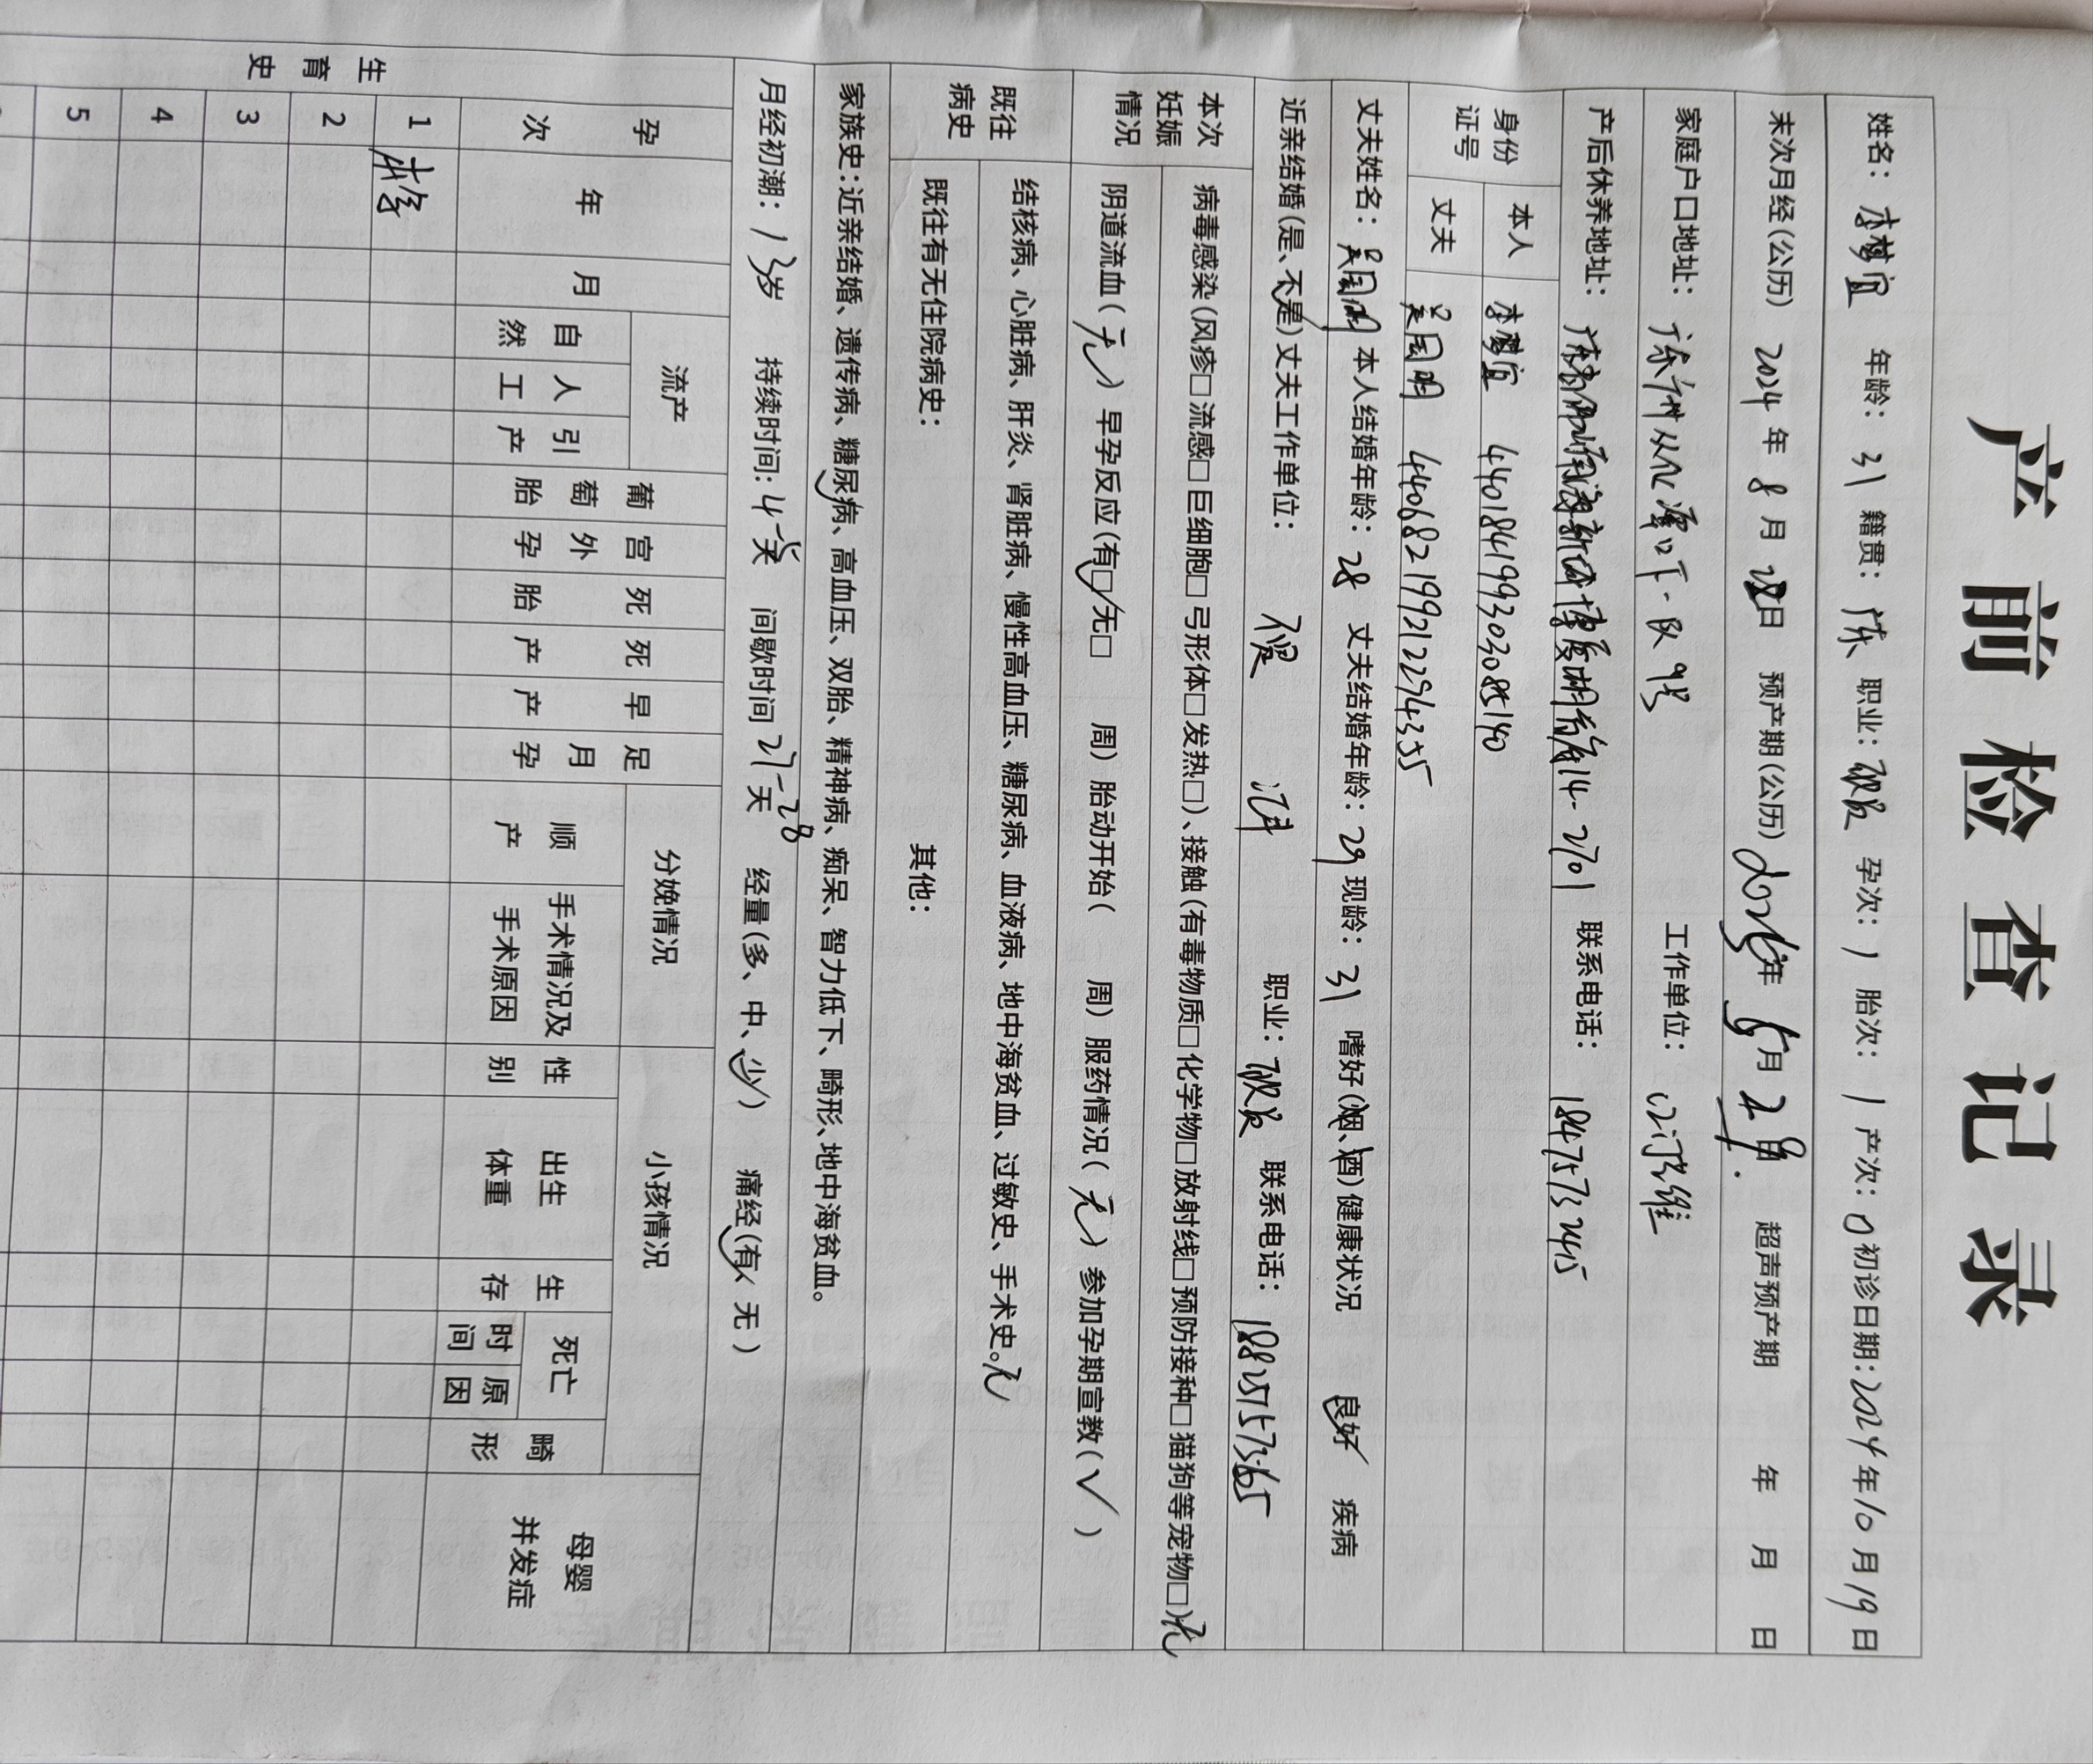 产前检查记录
姓名：李梦宜 年龄：31 籍贯：广东 职业： 孕次：1 胎次：1 产次：0 初诊日期：2024年10月19日
末次月经（公历） 2024年8月28日 预产期（公历） 2025年6月2日 超声预产期 年 月 日
家庭户口地址： 工作单位：
产后休养地址： 14-2701 联系电话：18475732415
身份证号 本人 李梦宜 440184199303085140
丈夫 吴国明 440682199212294355
丈夫姓名：吴国明 本人结婚年龄：28 丈夫结婚年龄：29 现龄：31 嗜好（烟、酒）健康状况 良好 疾病
近亲结婚（是、不是）丈夫工作单位： 职业： 联系电话：18825157365
本次妊娠情况 病毒感染（风疹□流感□巨细胞□弓形体□发热□）、接触（有毒物质□化学物□放射线□预防接种□猫狗等宠物□）无
阴道流血（无）早孕反应（有□✓无□ 周）胎动开始（ 周）服药情况（无）参加孕期宣教（✓）
既往病史 结核病、心脏病、肝炎、肾脏病、慢性高血压、糖尿病、血液病、地中海贫血、过敏史、手术史。无
既往有无住院病史： 其他：
家族史：近亲结婚、遗传病、糖尿病、高血压、双胎、精神病、痴呆、智力低下、畸形、地中海贫血。
月经初潮：13岁 持续时间：4-5天 间歇时间 27-28天 经量（多、中、少） 痛经（有、无）
生育史 孕次 年 月 流产 自然 人工 引产 葡萄胎 宫外孕 死胎 死产 早产 足月孕 分娩情况 顺产 手术情况及手术原因 小孩情况 性别 出生体重 生存 死亡 时间 原因 畸形 母婴并发症
1 本孕
2
3
4
5